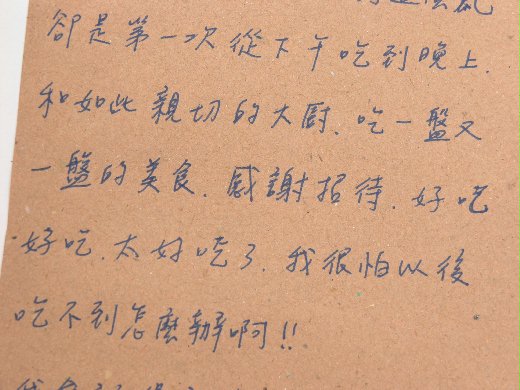 卻是第一次從下午吃到晚上.
和如此親切的大廚、吃一盤又
一盤的美食.感謝招待.好吃
好吃.太好吃了.我很怕以後
吃不到怎麼辦啊!!